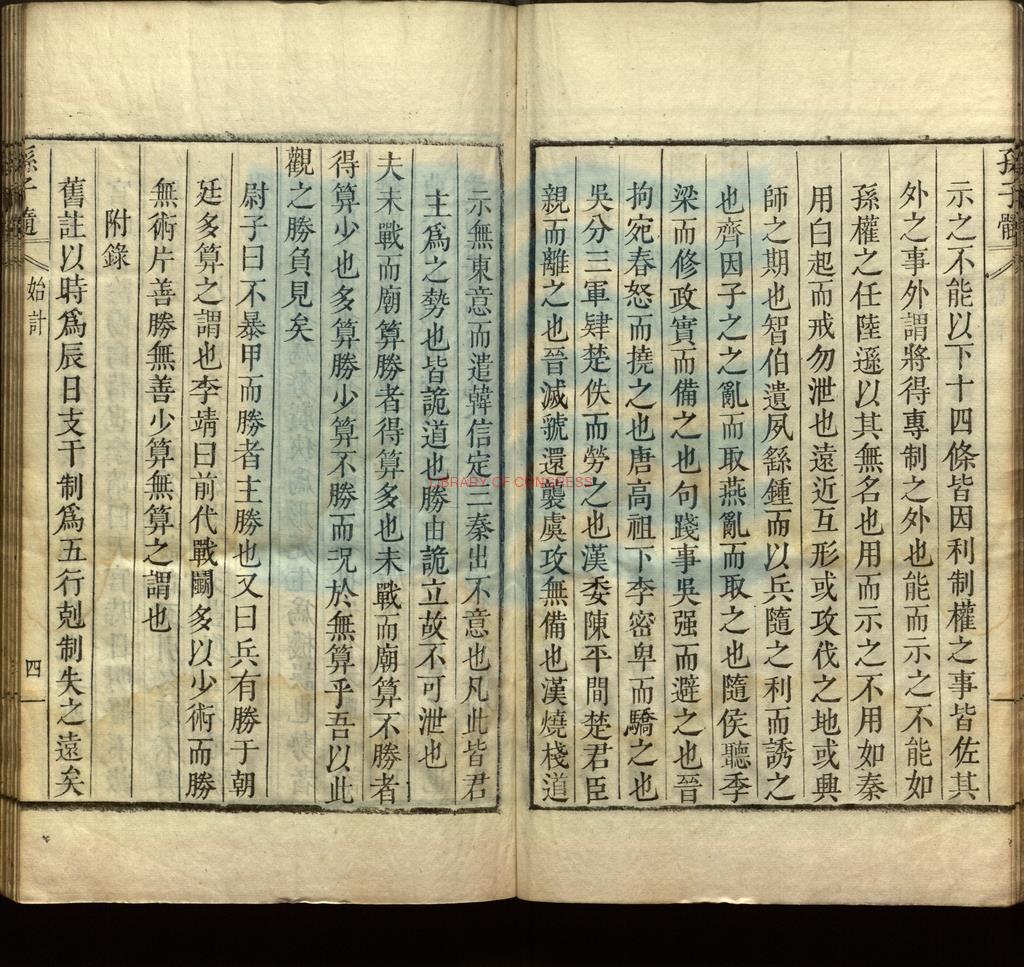 孫子髓
示之不能以下十四條皆因利制權之事皆佐其
外之事外謂將得專制之外也能而示之不能如
孫權之任陸遜以其無名也用而示之不用如秦
用白起而戒勿泄也遠近互形或攻伐之地或興
師之期也智伯遺夙繇鍾而以兵隨之利而誘之
也齊因子之之亂而取燕亂而取之也隨侯聽季
梁而修政實而備之也句踐事吳强而避之也晉
拘宛春怒而撓之也唐高祖下李密卑而驕之也
吳分三軍肄楚佚而勞之也漢委陳平間楚君臣
親而離之也晉滅虢還襲虞攻無備也漢燒棧道
示無東意而遣韓信定三秦出不意也凡此皆君
主爲之勢也皆詭道也勝由詭立故不可泄也
夫未戰而廟算勝者得算多也未戰而廟算不勝者
得算少也多算勝少算不勝而況於無算乎吾以此
觀之勝負見矣
尉子曰不暴甲而勝者主勝也又曰兵有勝于朝
廷多算之謂也李靖曰前代戰鬭多以少術而勝
無術片善勝無善少算無算之謂也
附錄
舊註以時爲辰日支干制爲五行剋制失之遠矣
孫子髓
始計
四
LIBRARY OF CONGRESS